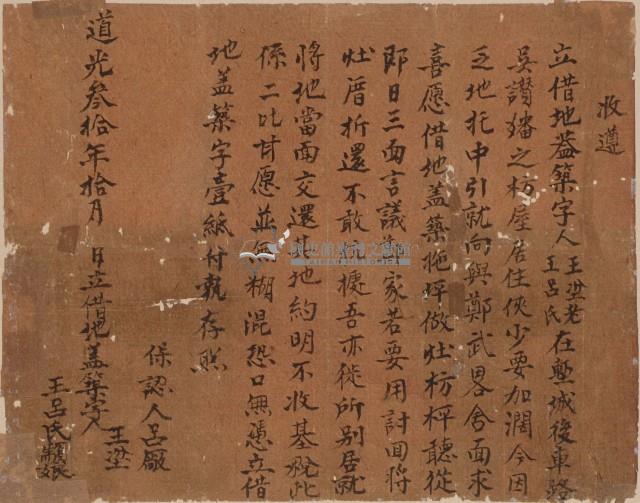 收遵
立借地蓋築字人王涇老王呂氏在塹城後車路
吳讚皤之枋屋居住俠少要加濶今因
乏地托中引就向與鄭武畧舍面求
喜愿借地蓋築拖坪做灶枋枰聽從
即日三面言議 家若要用討回將
灶厝折還不敢 據吾亦徙所別居就
將地當面交還 地約明不收基稅此
係二比甘愿並無糊混恐口無憑立借
地蓋築字壹紙付執存照
保認人呂廠
道光叁拾年拾月 日立借地蓋築字人
王
王呂氏